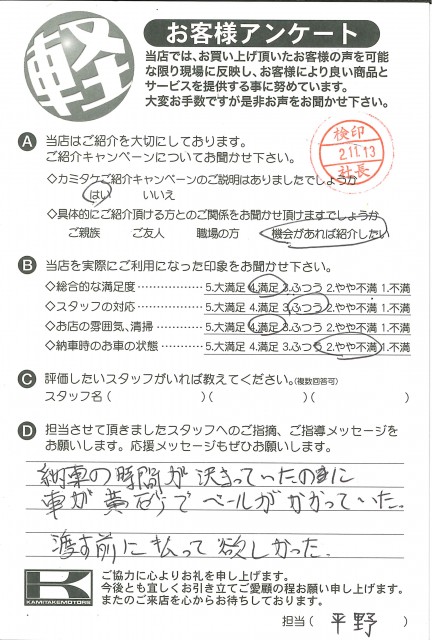 軽
お客様アンケート
当店では、お買い上げ頂いたお客様の声を可能
な限り現場に反映し、お客様により良い商品と
サービスを提供する事に努めています。
大変お手数ですが是非お声をお聞かせ下さい。
検印
2.11.13
社長
A 当店はご紹介を大切にしております。
ご紹介キャンペーンについてお聞かせ下さい。
◇カミタケご紹介キャンペーンのご説明はありましたでしょうか
はい いいえ
◇具体的にご紹介頂ける方とのご関係をお聞かせ頂けますでしょうか
ご親族 ご友人 職場の方 機会があれば紹介したい
B 当店を実際にご利用になった印象をお聞かせ下さい。
◇総合的な満足度 ……………… 5.大満足 4.満足 3.ふつう 2.やや不満 1.不満
◇スタッフの対応 ……………… 5.大満足 4.満足 3.ふつう 2.やや不満 1.不満
◇お店の雰囲気、清掃 ………… 5.大満足 4.満足 3.ふつう 2.やや不満 1.不満
◇納車時のお車の状態 ………… 5.大満足 4.満足 3.ふつう 2.やや不満 1.不満
C 評価したいスタッフがいれば教えてください。(複数回答可)
スタッフ名( )( )( )
D 担当させて頂きましたスタッフへのご指摘、ご指導メッセージを
お願いします。応援メッセージもぜひお願いします。
納車の時間が決まっていたのに
車が黄砂でベールがかかっていた.
渡す前に払って欲しかった.
K
KAMITAKEMOTORS
ご協力に心よりお礼を申し上げます。
今後とも宜しくお引き立てご愛顧の程お願い申し上げます。
またのご来店を心からお待ちしております。
担当( 平野 )